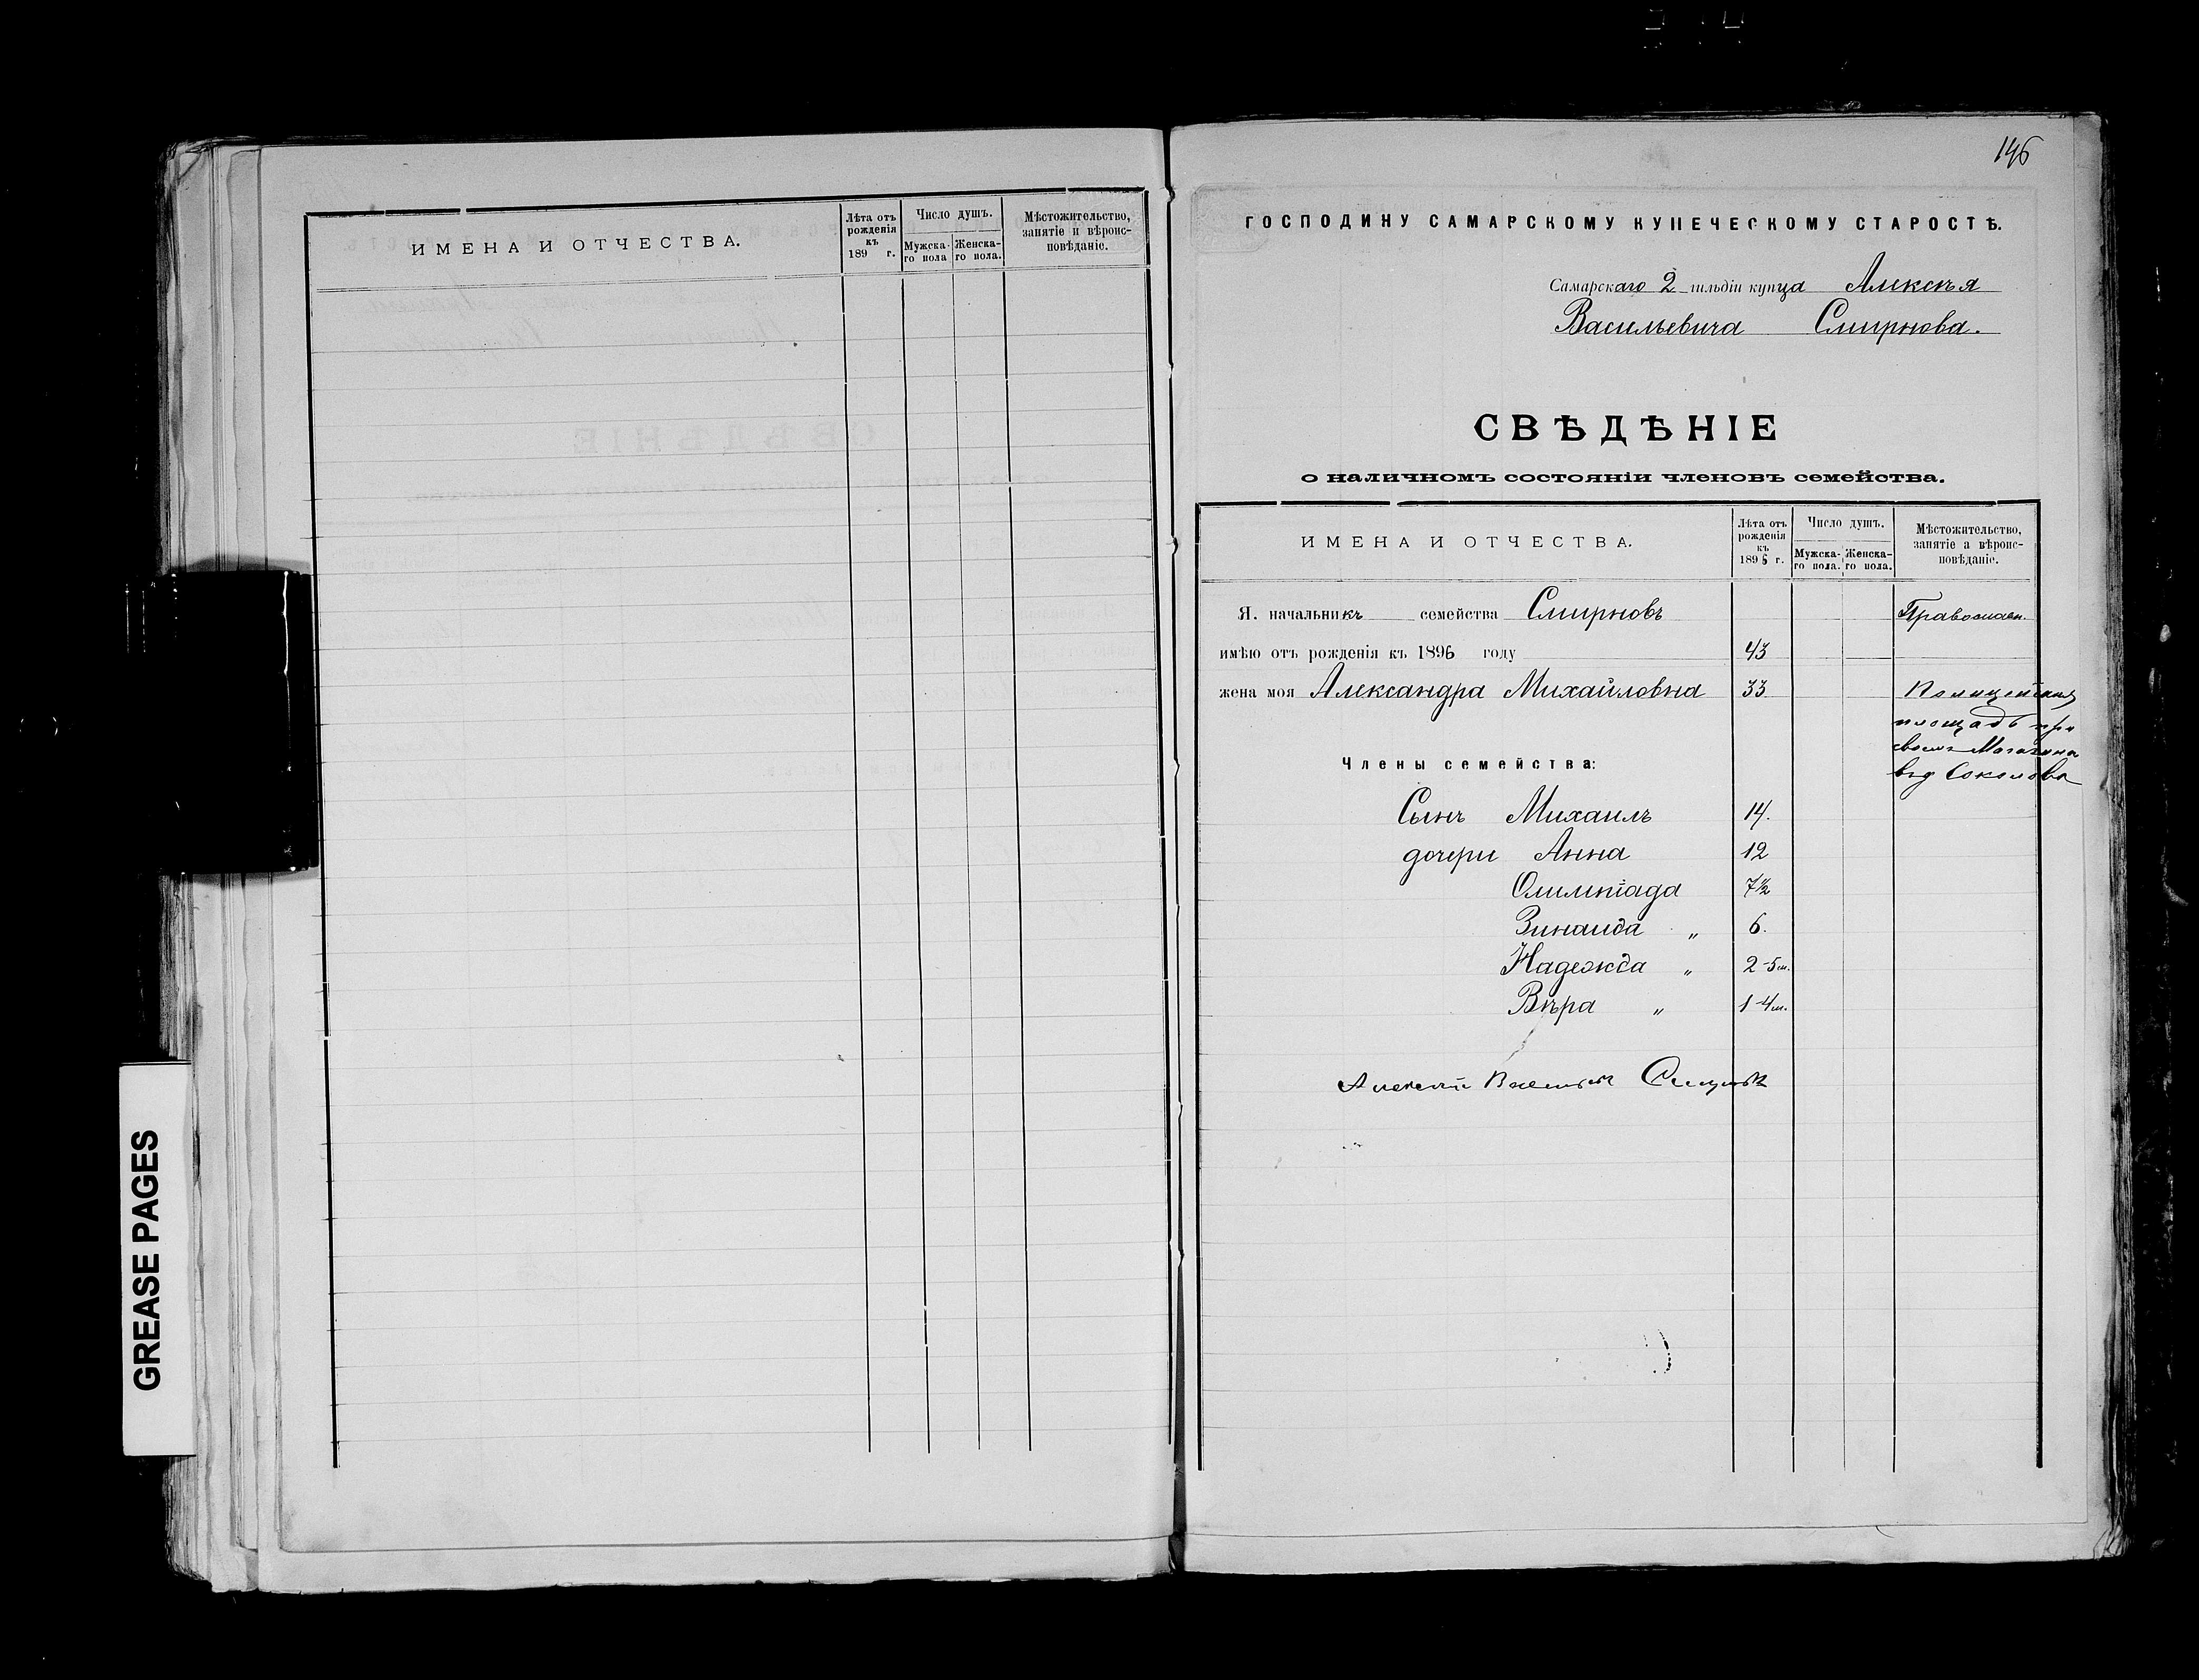 ИМЕНА И ОТЧЕСТВА.
Лѣта отъ рожденія къ 189 г.
Число душъ.
Мужска-го пола
Женска-го пола.
Мѣстожительство, занятіе и вѣроис-повѣданіе.
146
ГОСПОДИНУ САМАРСКОМУ КУПЕЧЕСКОМУ СТАРОСТѢ.
Самарскаго 2 гильдіи купца Алексѣя
Васильевича Смирнова.
СВѢДѢНІЕ
о наличномъ состояніи членовъ семейства.
ИМЕНА И ОТЧЕСТВА.
Лѣта отъ рожденія къ 1896 г.
Число душъ.
Мужска-го пола.
Женска-го пола.
Мѣстожительство, занятіе а вѣроис-повѣданіе.
Я. начальникъ семейства Смирновъ Православн.
имѣю отъ рожденія къ 1896 году 43
жена моя Александра Михайловна 33 Полицейская
площадь при
своемъ Магазина
Соколова
Члены семейства:
Сынъ Михаилъ 14.
дочери Анна 12
Олимпіада 7½
Зинаида „ 6.
Надежда „ 2-5м.
Вѣра „ 1-4м.
Алексѣй Васильевъ Смирновъ
GREASE PAGES